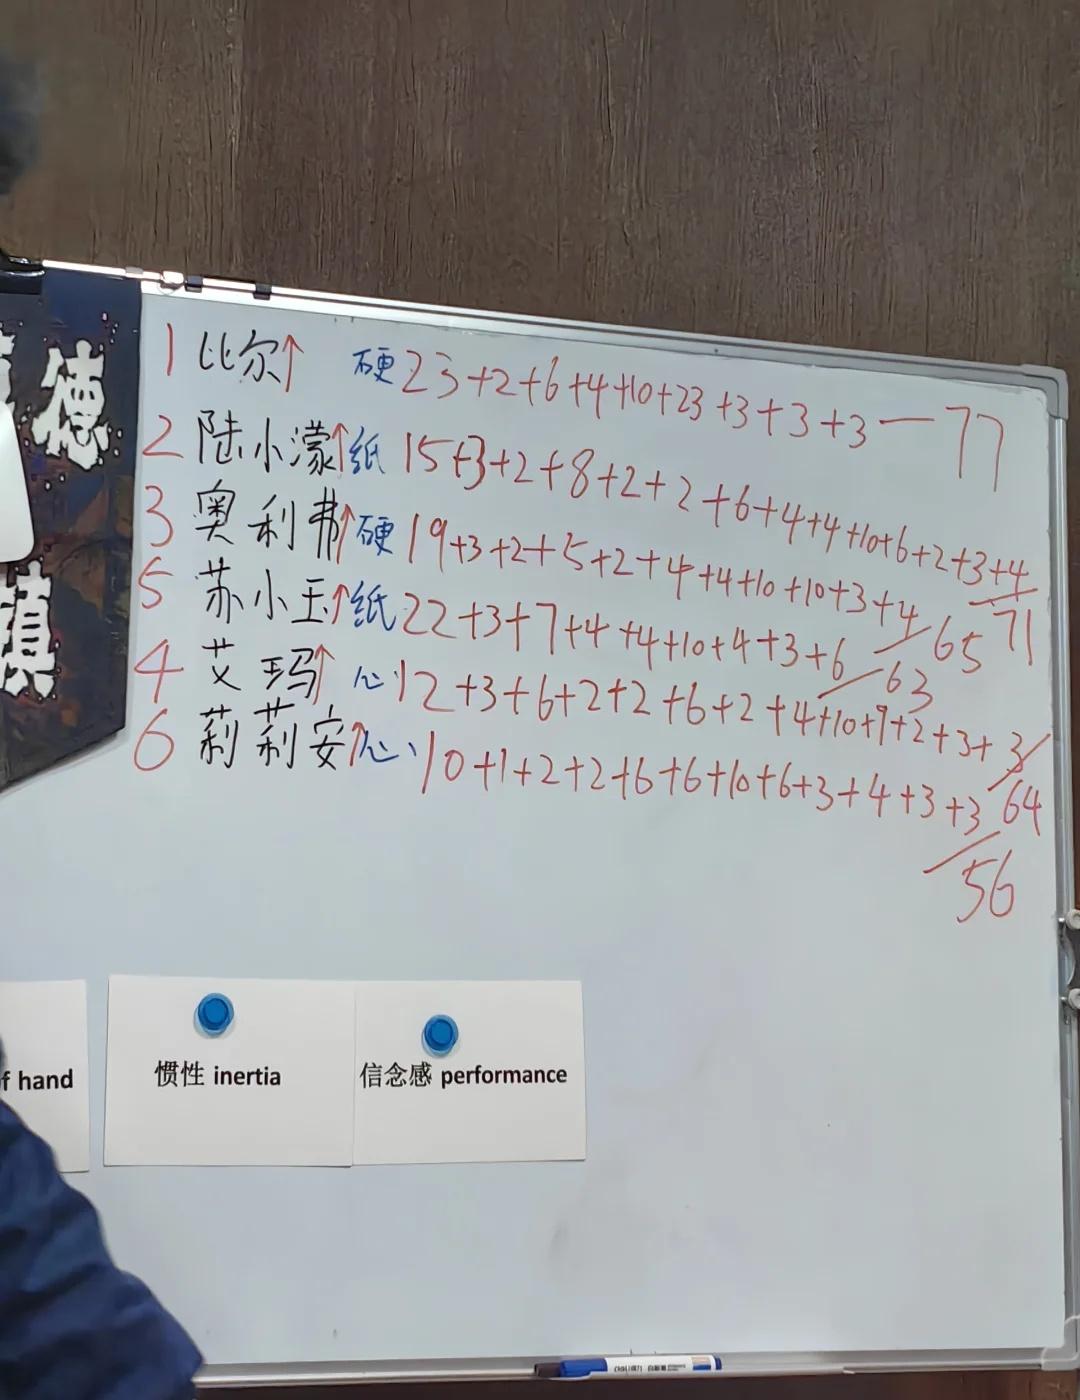 德
镇
1 比尔↑ 硬 23+2+6+4+10+23+3+3+3—77
2 陆小濛↑纸 15+3+2+8+2+2+6+4+4+10+6+2+3+4 71
3 奥利弗↑硬 19+3+2+5+2+4+4+10+10+3+4 65
5 苏小玉↑纸 22+3+7+4+4+10+4+3+6 63
4 艾玛↑ 心 12+3+6+2+2+6+2+4+10+9+2+3+3 64
6 莉莉安↑心 10+1+2+2+6+6+10+6+3+4+3+3 56
f hand
惯性 inertia
信念感 performance